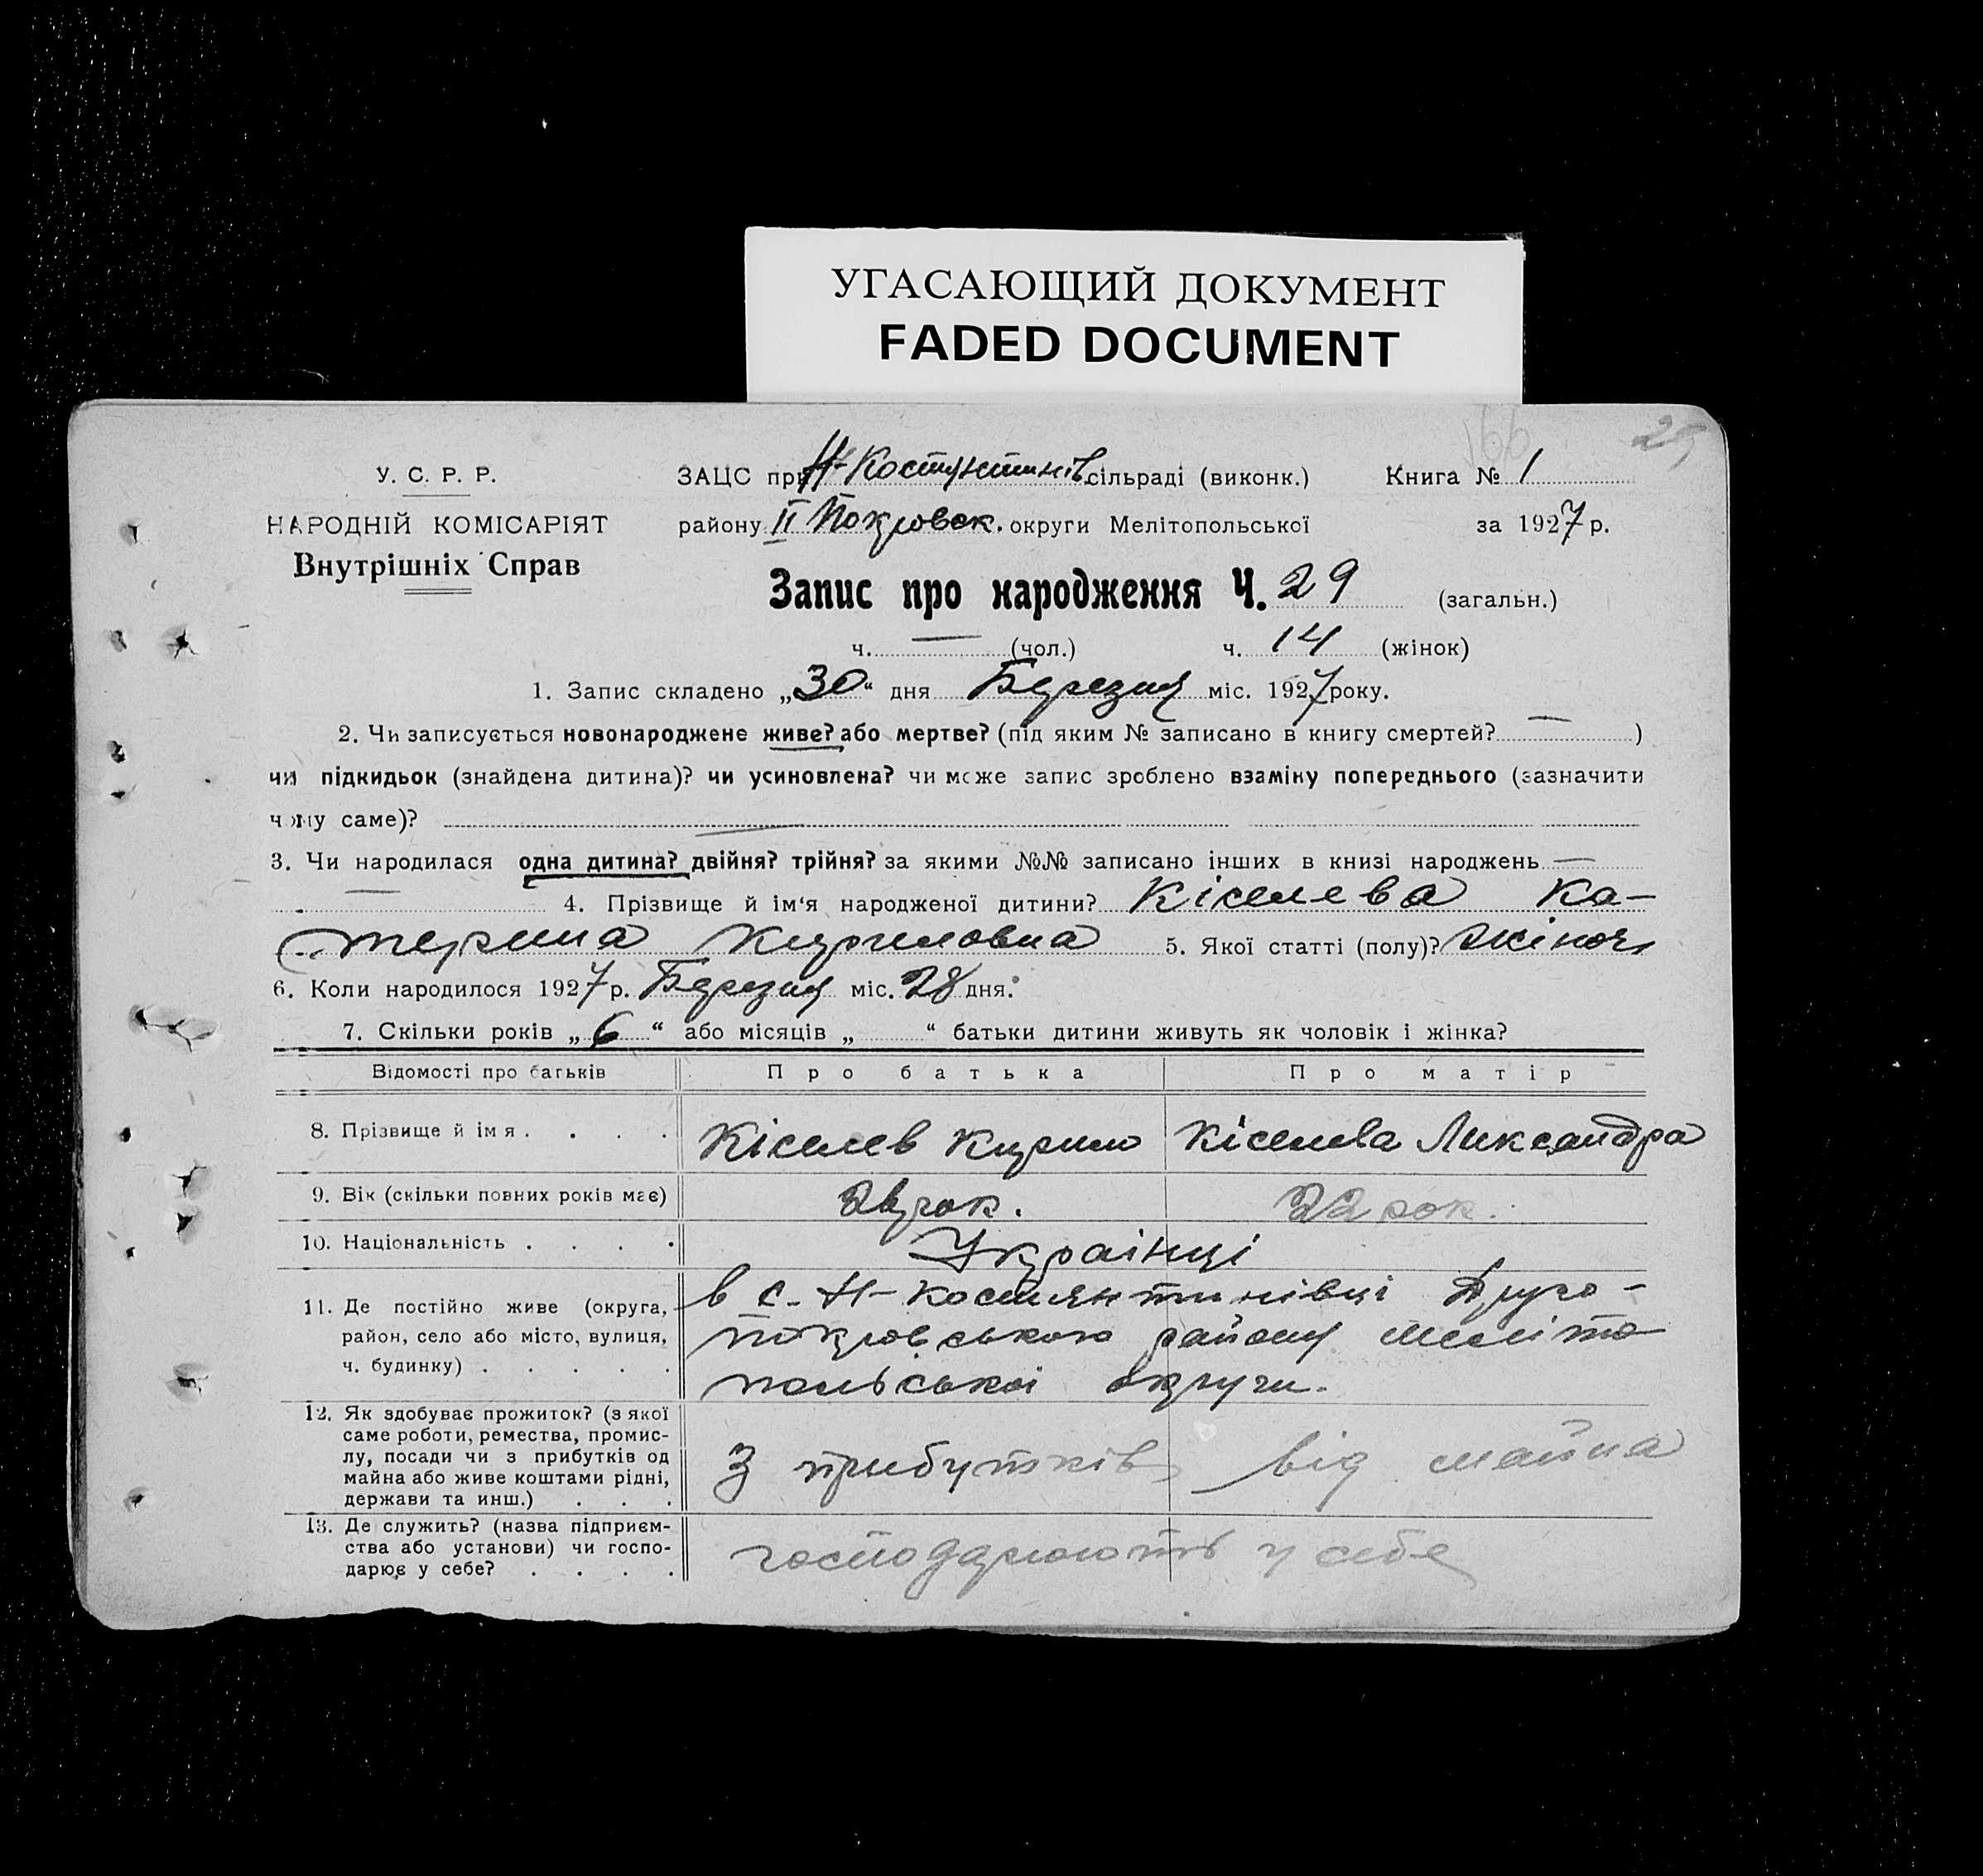 УГАСАЮЩИЙ ДОКУМЕНТ
FADED DOCUMENT
29
У. С. Р. Р.
НАРОДНІЙ КОМІСАРІЯТ
Внутрішніх Справ
ЗАЦС при Н-Костянтинів сільраді (виконк.) Книга № 1
району II Покровск. округи Мелітопольської за 1927 р.
Запис про народження Ч. 29 (загальн.)
ч. — (чол.) ч. 14 (жінок)
1. Запис складено „30“ дня Березня міс. 1927 року.
2. Чи записується новонароджене живе? або мертве? (під яким № записано в книгу смертей? — )
чи підкидьок (знайдена дитина)? чи усиновлена? чи може запис зроблено взаміну попереднього (зазначити
чому саме)? —
3. Чи народилася одна дитина? двійня? трійня? за якими №№ записано інших в книзі народжень —
— 4. Прізвище й ім‘я народженої дитини? Кіселева Ка-
терина Кириловна 5. Якої статті (полу)? жіноч
6. Коли народилося 1927 р. Березня міс. 28 дня.
7. Скільки років „6“ або місяців „ “ батьки дитини живуть як чоловік і жінка?
Відомості про батьків Про батька Про матір
8. Прізвище й імя . . . . . Кіселев Кирило Кіселева Лександра
9. Вік (скільки повних років має) рок. 22 рок.
10. Національність . . . . Українці
11. Де постійно живе (округа,
район, село або місто, вулиця,
ч. будинку) . . . . .
в с. Н-Костянтинівці Друго-
покровського району Меліто
польської округи.
12. Як здобуває прожиток? (з якої
саме роботи, ремества, промис-
лу, посади чи з прибутків од
майна або живе коштами рідні,
держави та инш.) . . .
З прибутків від майна
13. Де служить? (назва підприєм-
ства або установи) чи госпо-
дарює у себе? . . . .
господарюють у себе